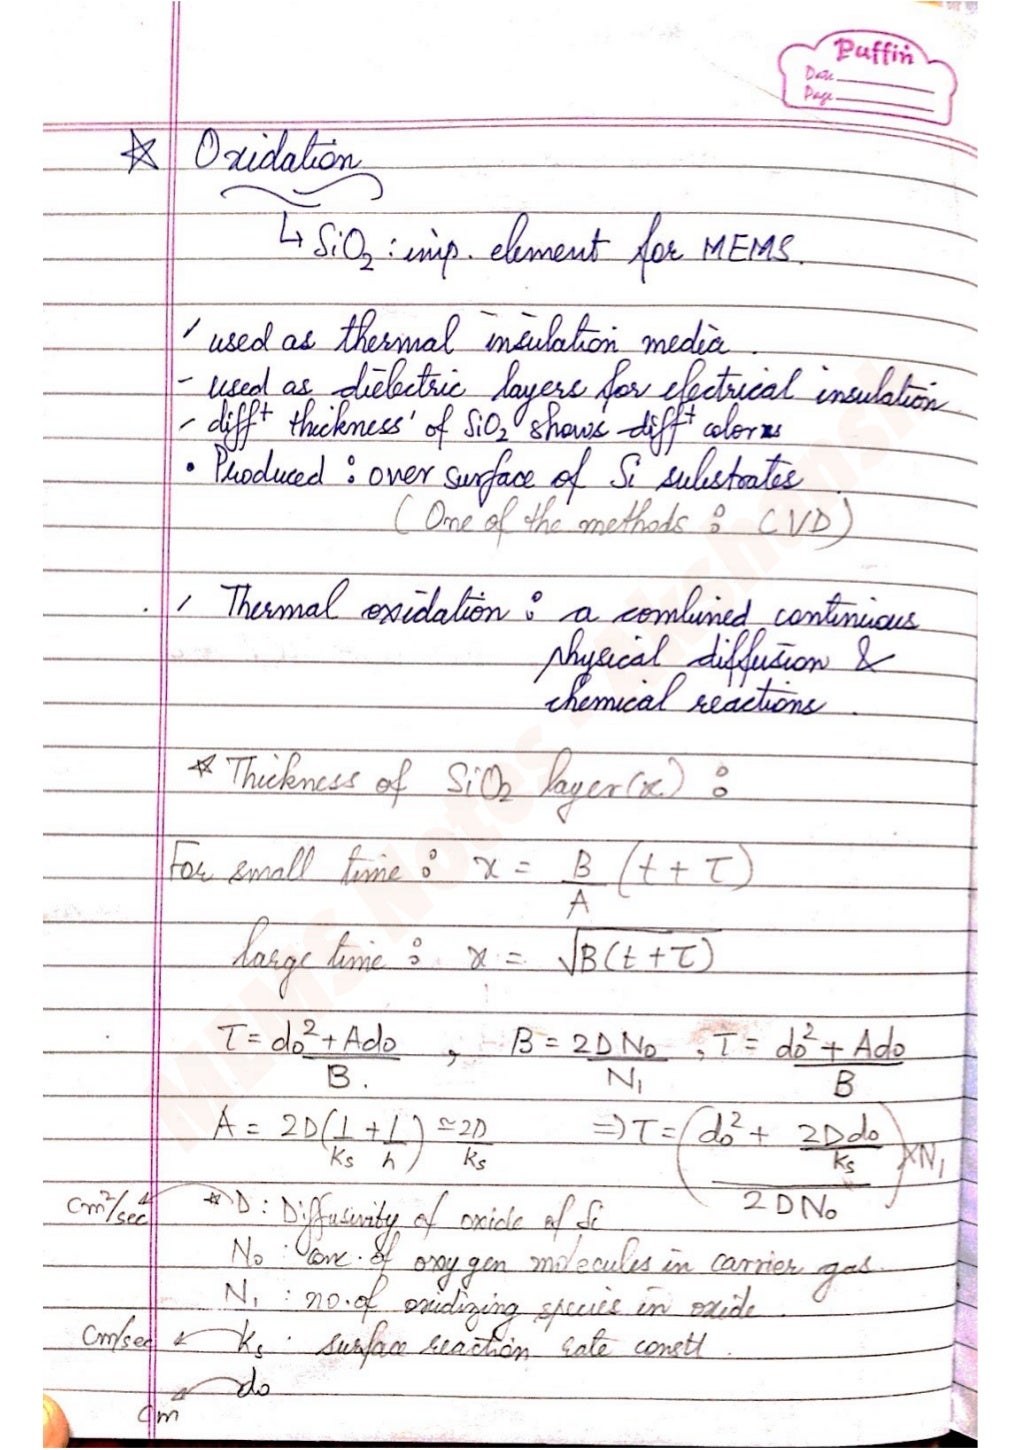 Puffin
Date
Page
☆ Oxidation
↳ SiO₂ : imp. element for MEMS.
- used as thermal insulation media.
- used as dielectric layers for electrical insulation.
- difft thickness of SiO₂ shows difft colors
• Produced : over surface of Si substrates.
(One of the methods : CVD)
- Thermal oxidation : a combined continuous
physical diffusion &
chemical reactions.
☆ Thickness of SiO₂ layer (x) :
For small time : x = B/A (t + τ)
large time : x = √(B(t + τ))
τ = (d₀² + Ad₀)/B. , B = 2DN₀/N₁ , τ = (d₀² + Ad₀)/B
A = 2D(1/ks + 1/h) ≃ 2D/ks ⇒ τ = ((d₀² + 2Dd₀/ks)/2DN₀) × N₁
cm²/sec ☆ D : Diffusivity of oxide of Si
N₀ : conc. of oxygen molecules in carrier gas.
N₁ : no. of oxidizing species in oxide.
cm/sec ks : surface reaction rate constt.
d₀
cm
MEMS Notes Akshansh